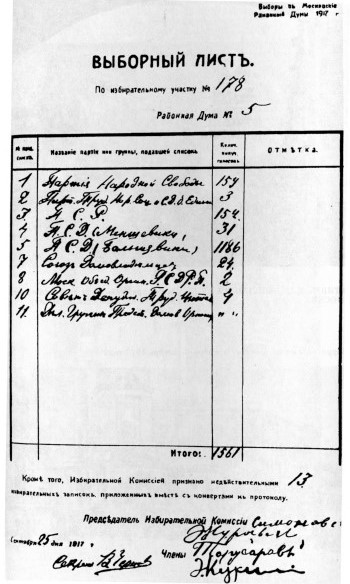 Выборы въ Московскіе
Районныя Думы 1917 г.
ВЫБОРНЫЙ ЛИСТЪ.
По избирательному участку № 178
Районная Дума № 5
№ списка. Названіе партіи или группы, подавшей списокъ голосовъ. ОТМѢТКА.
1 Партія Народной Свободы 154
2 3
3 П. С. Р. 154
4 Р. С. Д. (Меньшевики) 31
5 Р. С. Д. (Большевики) 1186
7 Союзъ Домовладѣльц. 24
8 Моск. Объед. Орган. Р. С. Д. Р. П. 2
10 Совѣтъ Депут. Труд. 4
11 Группа " "
Итого: 1561
Кромѣ того, Избирательной Комиссіей признано недѣйствительными 13
избирательныхъ записокъ, приложенныхъ вмѣстѣ съ конвертами къ протоколу.
Предсѣдатель Избирательной Комиссіи Симоновъ
Сентября 25 дня 1917 г.
Члены